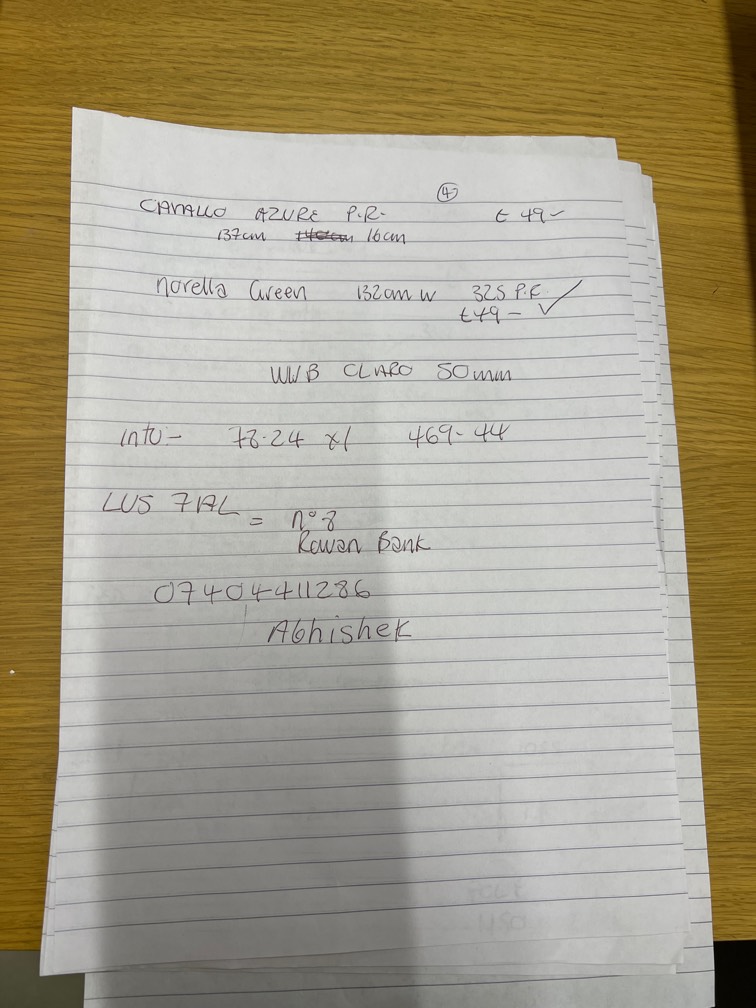 ④
CAVALLO AZURE P.R. £49-
137cm 16cm
Norella Green 132cm w 325 P.F.
£49- ✓
WWB CLARO 50mm
intu- 78.24 x1 469-44
LU5 7AL = n° 8
Rowan Bank
07404411286
Abhishek